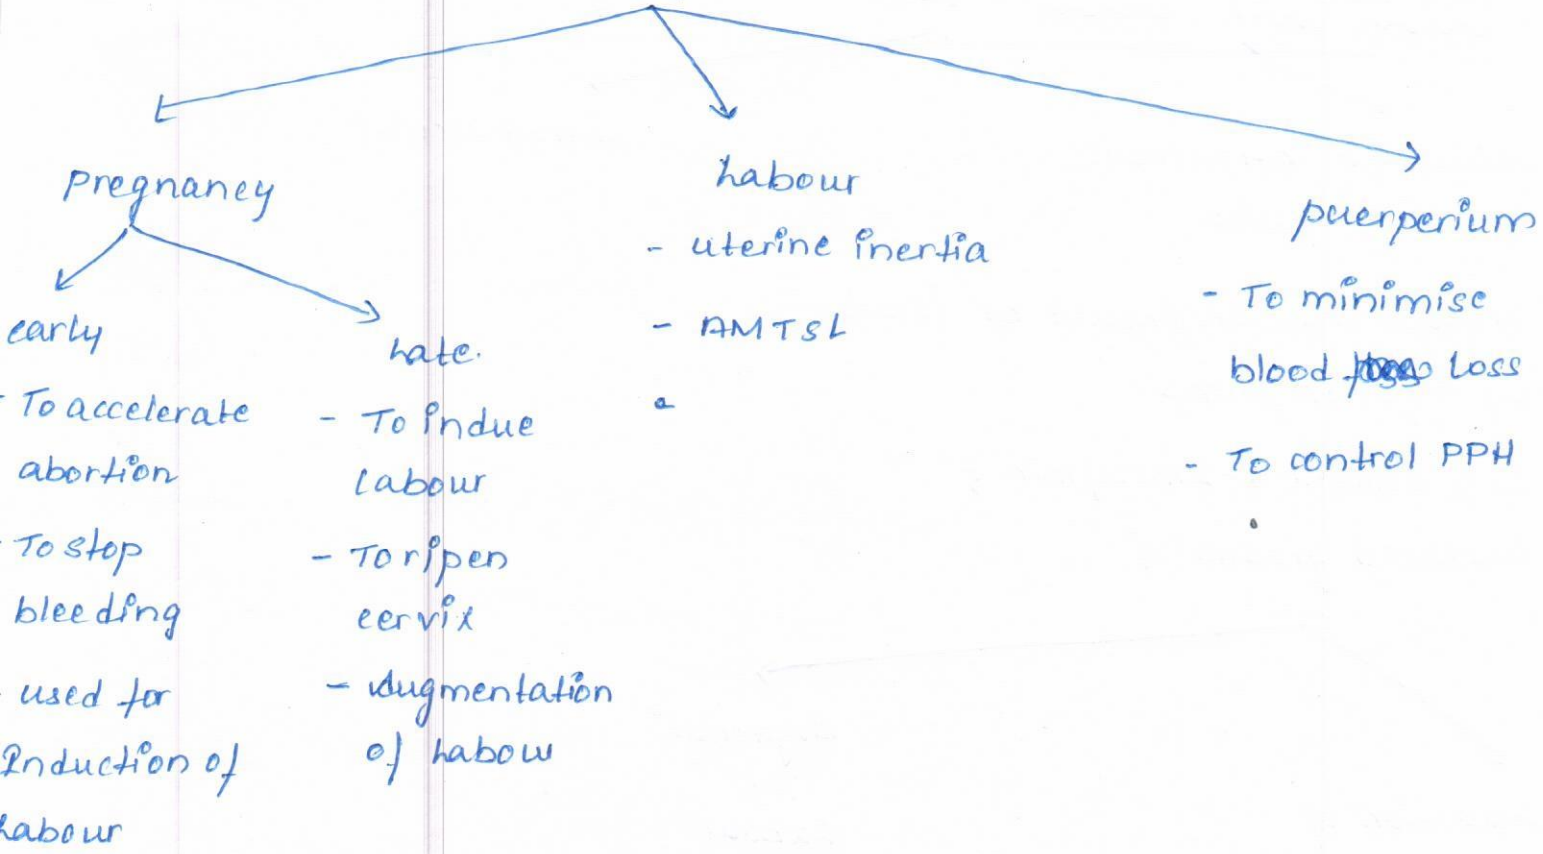 pregnancy
early
- To accelerate
abortion
- To stop
bleeding
- used for
Induction of
Labour
Late.
- To indue
labour
- To ripen
cervix
- Augmentation
of Labour
Labour
- uterine inertia
- AMTSL
puerperium
- To minimise
blood loss
- To control PPH